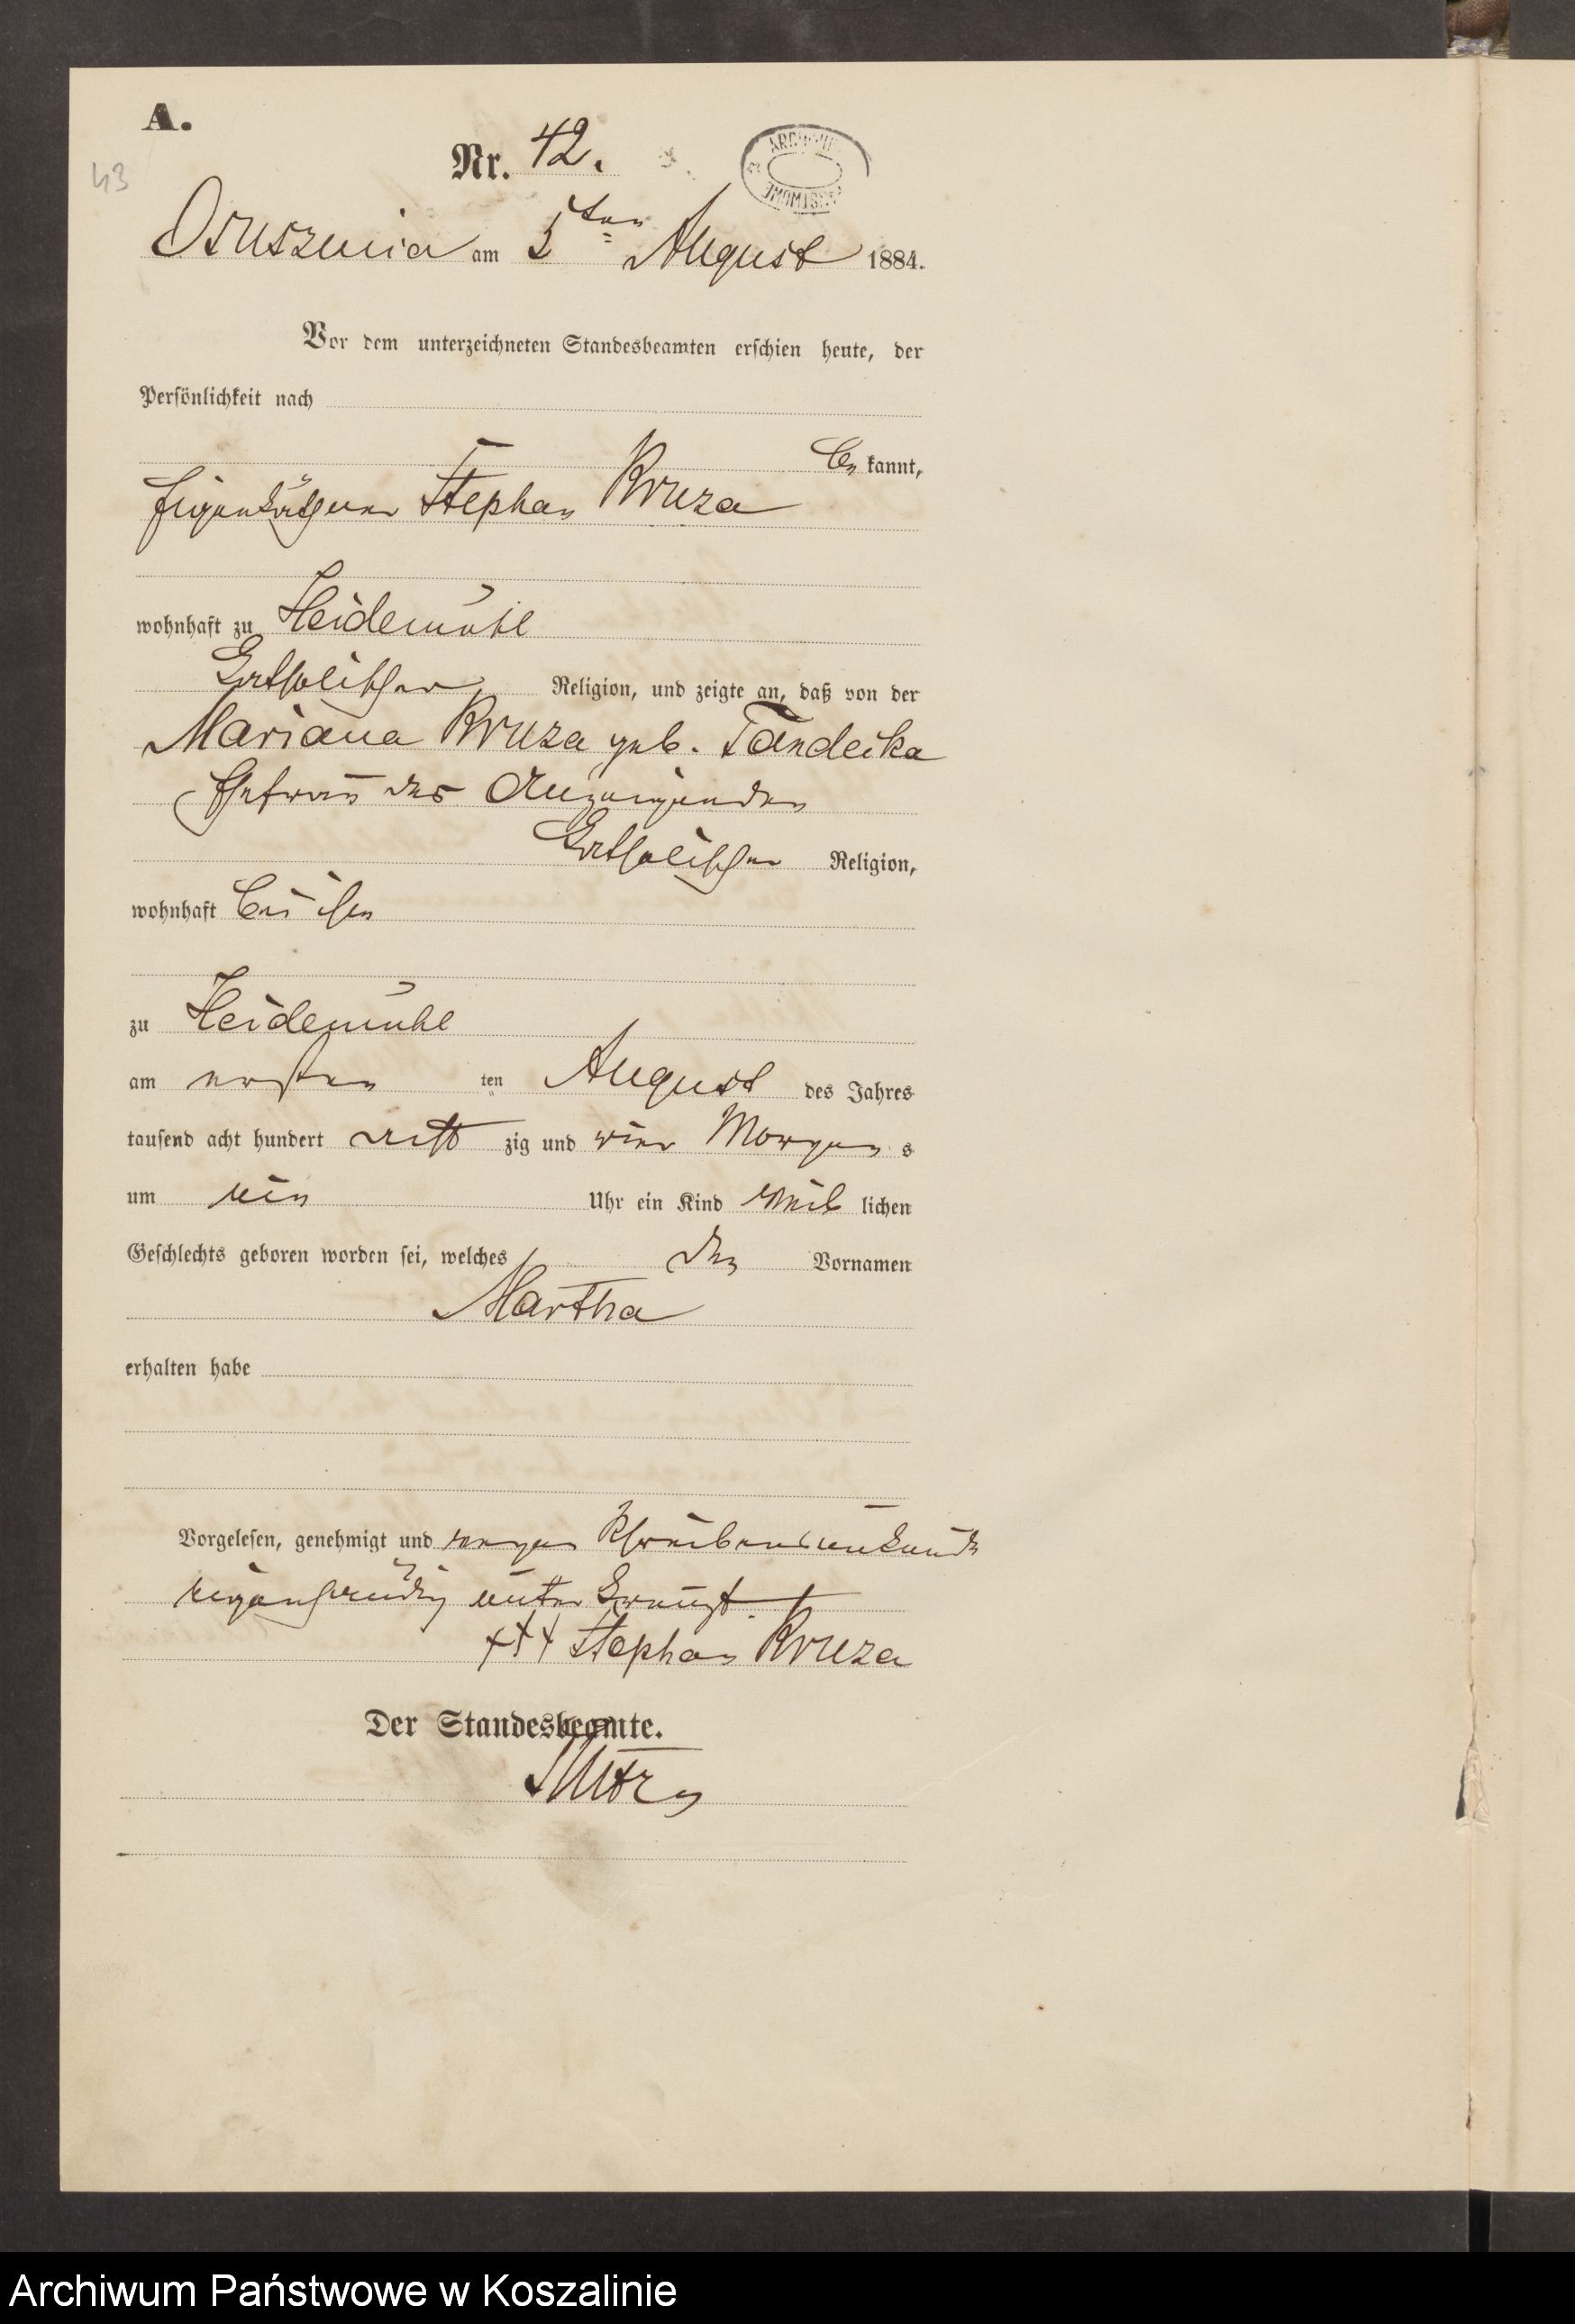 A.
43
Nr. 42.
Osusznica am 5ten August 1884.
Vor dem unterzeichneten Standesbeamten erschien heute, der
Persönlichkeit nach
be kannt,
Eigenkäthner Stephan Kruza
wohnhaft zu Heidemühl
katholischer Religion, und zeigte an, daß von der
Mariana Kruza geb. Tandecka
Ehefrau des Anzeigenden
katholischer Religion,
wohnhaft bei ihm
zu Heidemühl
am ersten ten August des Jahres
tausend acht hundert acht zig und vier Morgen s
um ein Uhr ein Kind weib lichen
Geschlechts geboren worden sei, welches den Vornamen
Martha
erhalten habe
Vorgelesen, genehmigt und wegen Schreibensunkunde
eigenhändig unterkreuzt.
+++ Stephan Kruza
Der Standesbeamte.
Archiwum Państwowe w Koszalinie